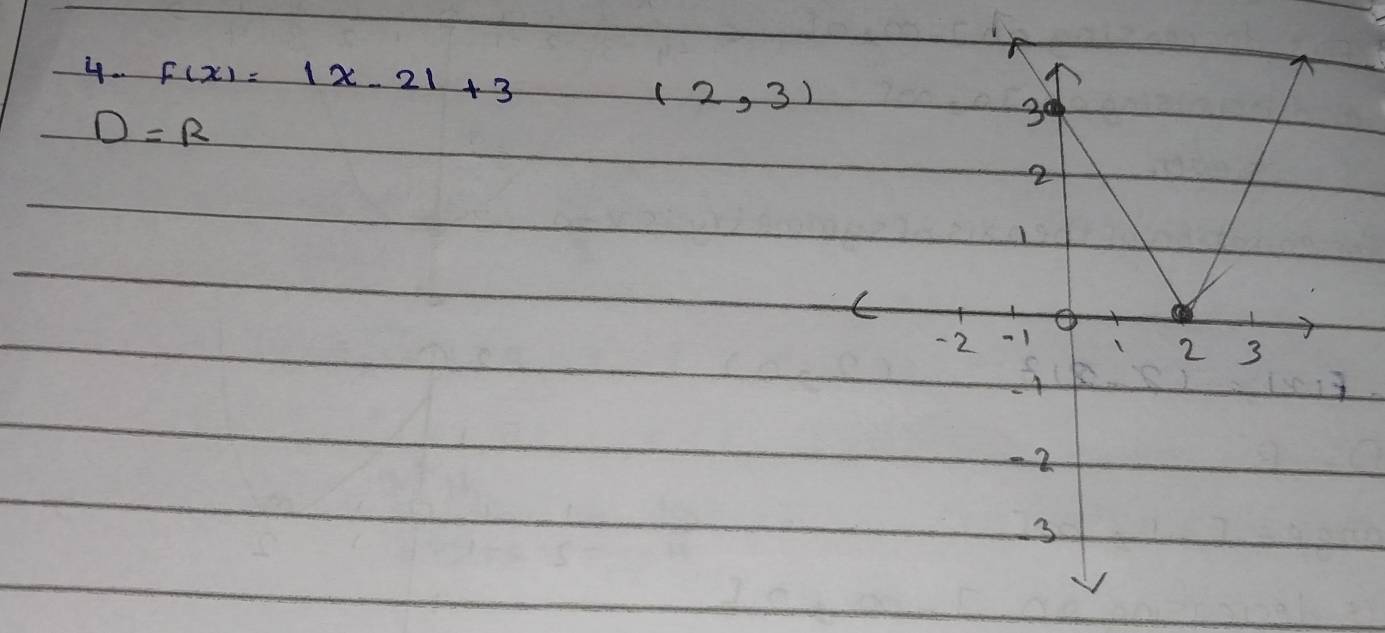 4.. F(x) = |x - 2| + 3 (2, 3)
D = R
3
2
1
-2 -1 1 2 3
-1
-2
-3